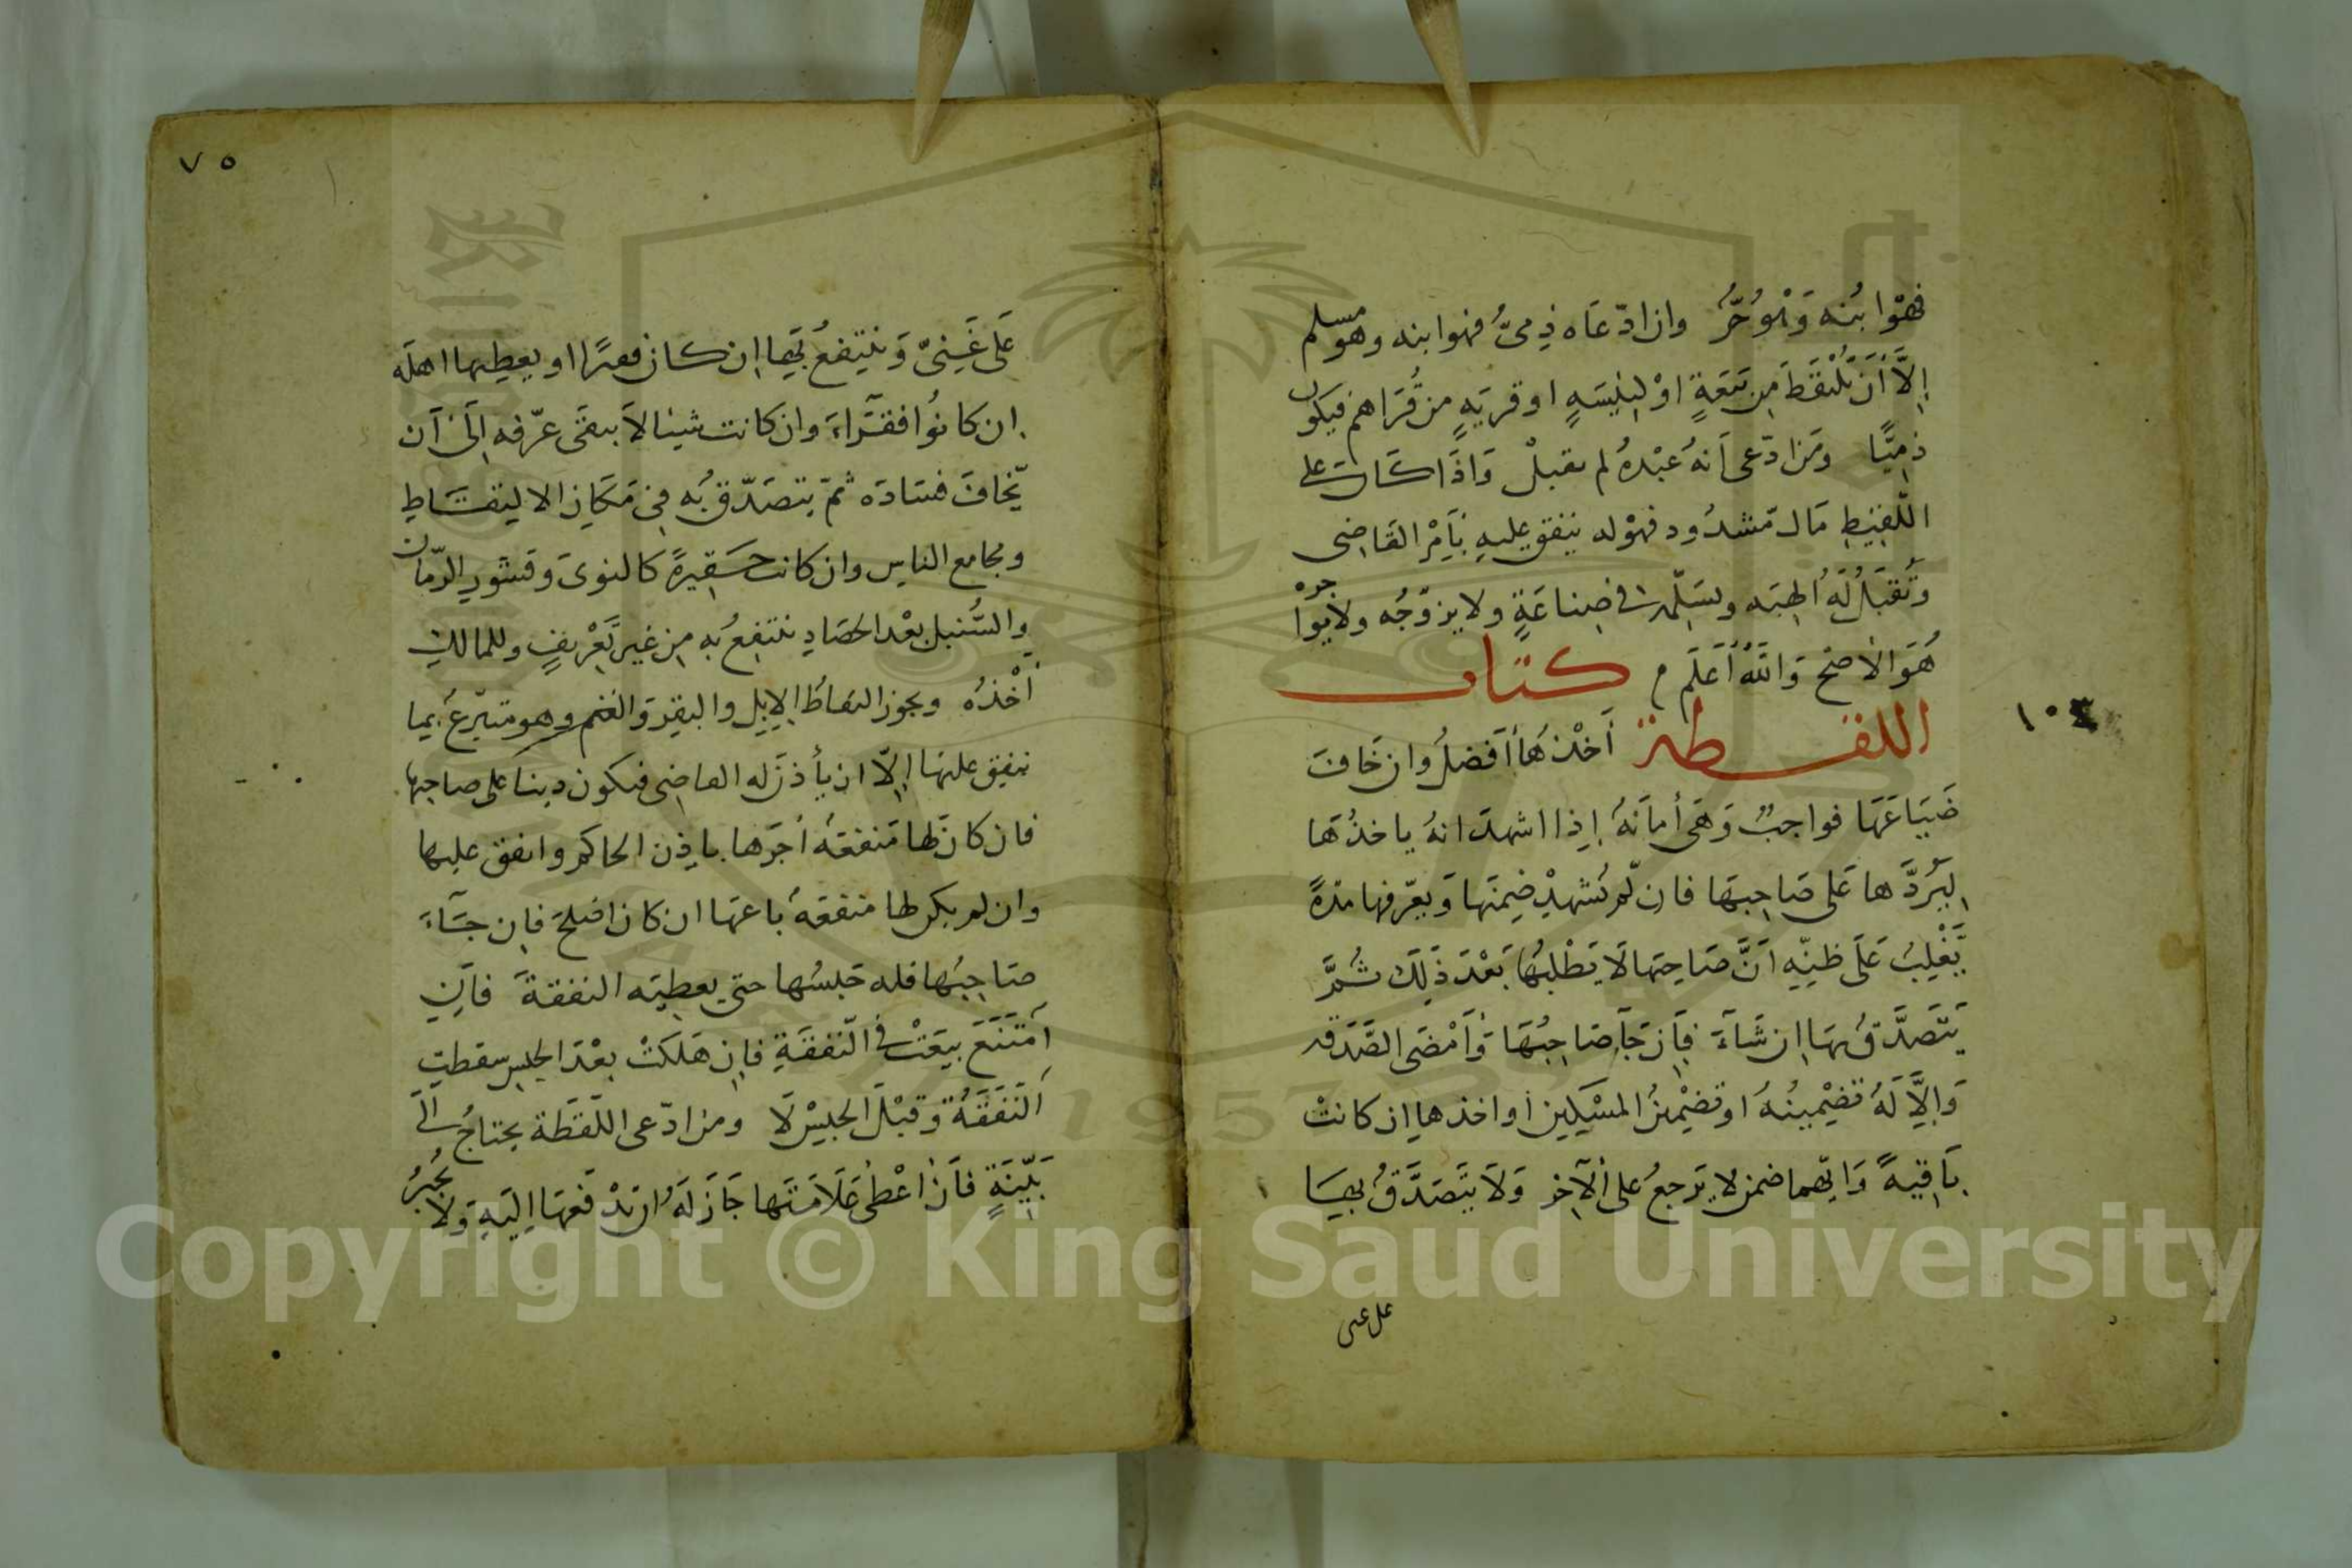 فهوا بنه وهو حر وان ادّعاه ذمى فهوا بنه وهو مسلم
إلّا أن يلتقط من بيعة او كنيسة او قرية من قراهم فيكون
ذميّا ومن ادّعى انه عبده لم يقبل واذا كان على
اللقيط مال مشدود فهو له ينفق عليه بامر القاضى
وتقبل له الهبه ويسلمه فى صناعة ولا يزوّجه ولا يواجره
هو الاصح والله أعلم م كتاب
اللقطة أخذها أفضل وان خاف
ضياعها فواجب وهى أمانة إذا اشهد انه ياخذها
ليردّها على صاحبها فان لم يشهد ضمنها ويعرّفها مدة
يغلب على ظنّه انّ صاحبها لا يطلبها بعد ذلك ثمّ
يتصدّق بها إن شآء فان جآ صاحبها وأمضى الصّدقه
وإلّا له تضمينه او تضمين المسكين أواخذها ان كانت
باقية وايّهما ضمن لا يرجع على الآخر ولا يتصدّق بها
على غنى
١٠٤
٧٥
على غنىّ وينتفع بها ان كان فقيرًا او يعطيها اهله
ان كانوا فقرآء وان كانت شيئا لا يبقى عرّفه الى ان
يّخاف فساده ثمّ يتصدّق به فى مكان الالتقاط
ومجامع الناس وان كانت حقيرة كالنوى وقشور الرّمان
والسّنبل بعد الحصاد ينتفع به من غير تعريف وللمالك
أخذه ويجوز التقاط الابل والبقر والغنم وهو متبرّع بما
ينفق عليها إلّا ان يأذن له القاضى فيكون دينا على صاحبها
فان كان لها منفعة أجرها باذن الحاكم وانفق عليها
وان لم يكن لها منفعة باعها ان كان اصلح فان جآء
صاحبها فله حبسها حتى يعطيه النفقة فان
امتنع بيعت فى النّفقة فان هلكت بعد الحبس سقطت
النفقة وقبل الحبس لا ومن ادّعى اللّقطة يحتاج الى
بيّنة فان أعطى علامتها جاز له ان يدفعها اليه ولا يجبر
Copyright © King Saud University
1957